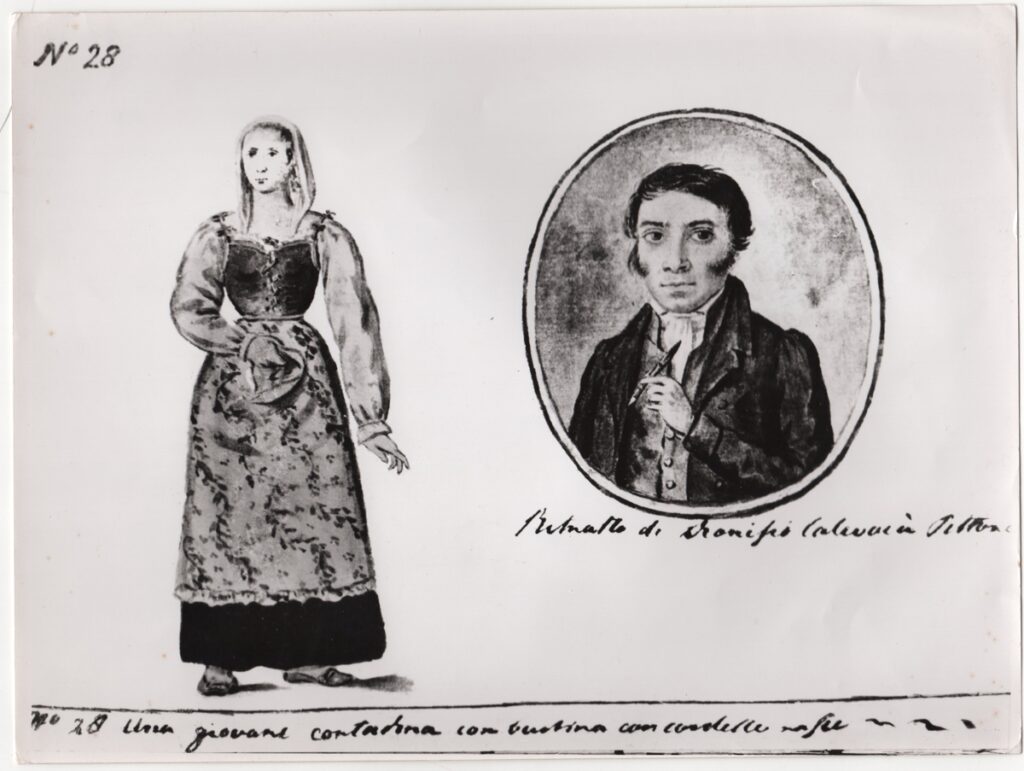 Nº 28
Ritratto di Dionisio Calavacin Pittore
Nº 28 Una giovane contadina con bustina con cordelle rosse